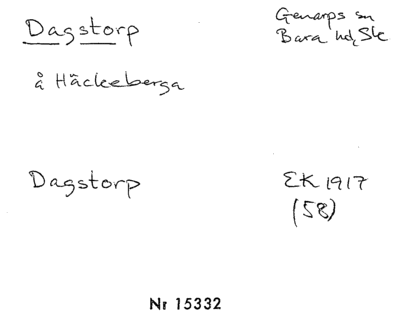 Dagstorp
Genarps sn
Bara hd, Sk
å Häckeberga
Dagstorp
EK 1917
(58)
Nr 15332